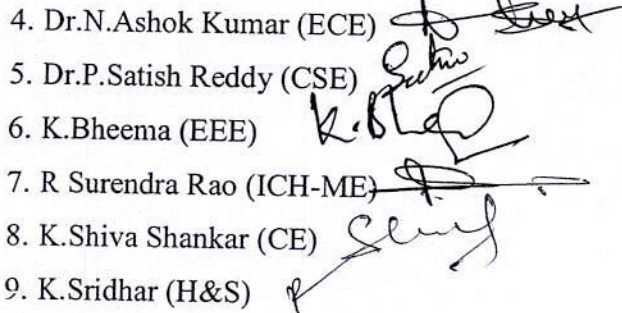 4. Dr.N.Ashok Kumar (ECE)
5. Dr.P.Satish Reddy (CSE)
6. K.Bheema (EEE) K.Bh
7. R Surendra Rao (ICH-ME)
8. K.Shiva Shankar (CE)
9. K.Sridhar (H&S)